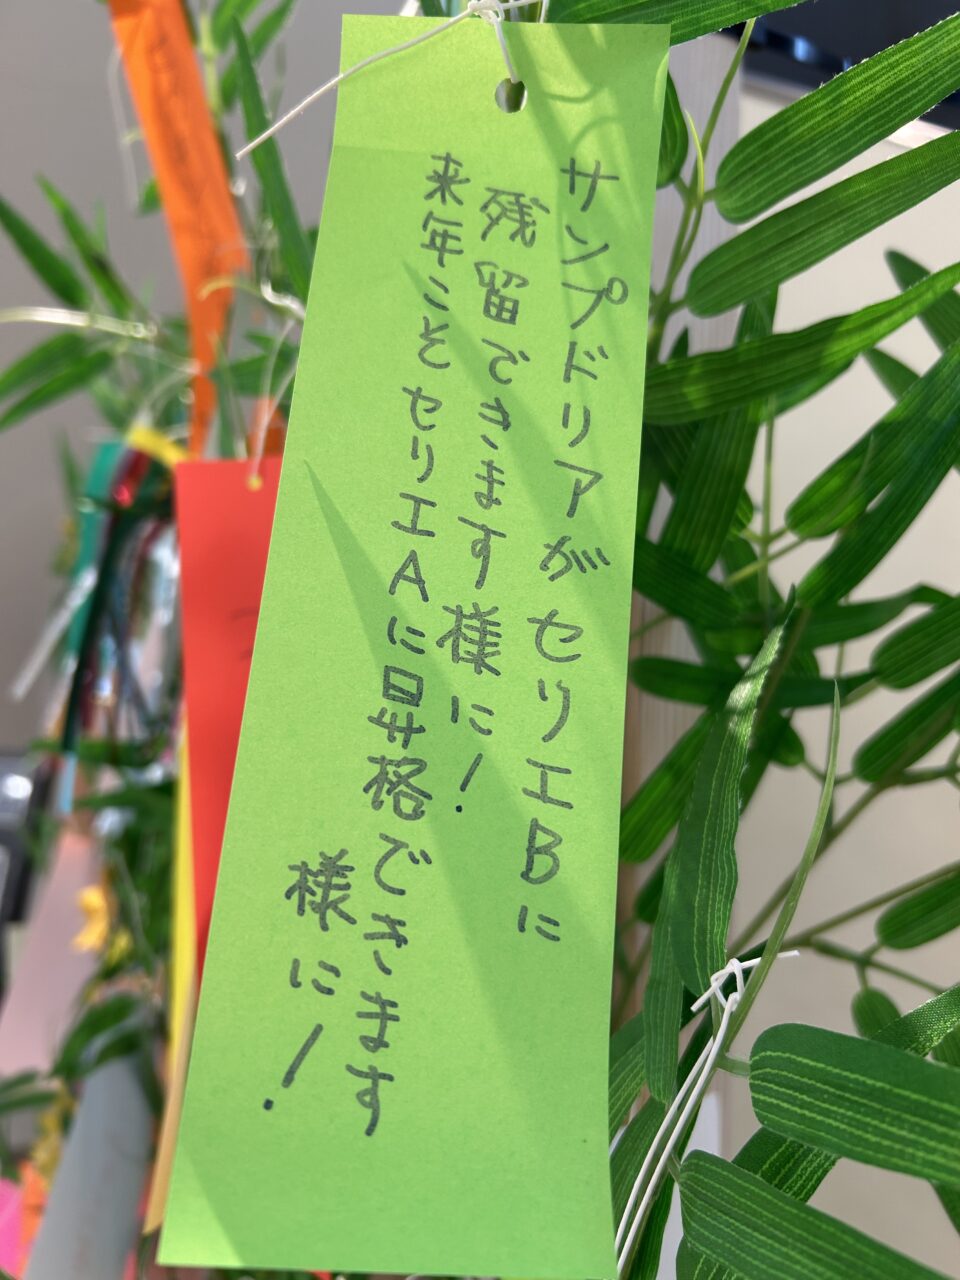 サンプドリアがセリエBに
残留できます様に!
来年こそセリエAに昇格できます
様に!